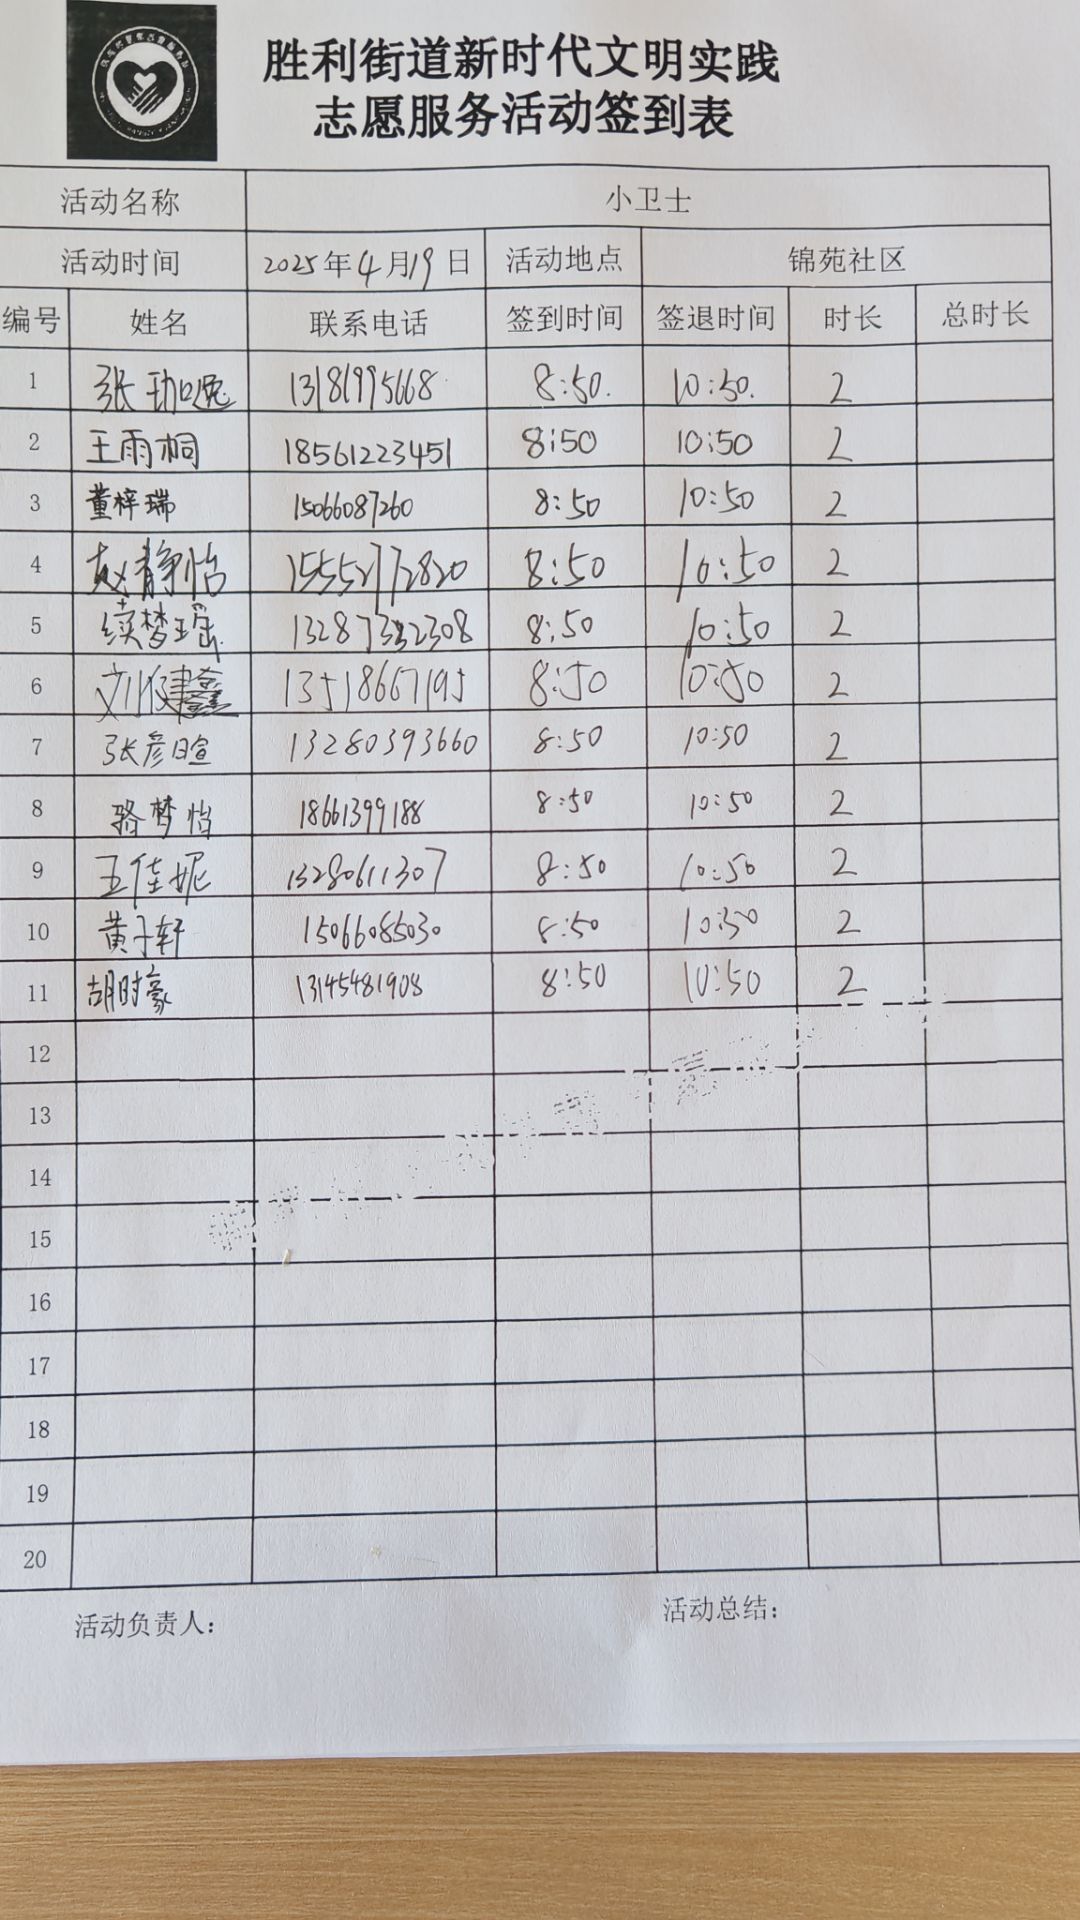 胜利街道新时代文明实践
志愿服务活动签到表
活动名称 小卫士
活动时间 2025年4月19日 活动地点 锦苑社区
编号 姓名 联系电话 签到时间 签退时间 时长 总时长
1 张珈逸 13181995668 8:50. 10:50. 2
2 王雨桐 18561223451 8:50 10:50 2
3 董梓瑞 15066087260 8:50 10:50 2
4 赵静怡 15552772820 8:50 10:50 2
5 续梦瑶 13287332308 8:50 10:50 2
6 刘健鑫 13518667195 8:50 10:50 2
7 张彦暄 13280393660 8:50 10:50 2
8 骆梦怡 18661399188 8:50 10:50 2
9 王佳妮 13280611307 8:50 10:50 2
10 黄子轩 15066085030 8:50 10:50 2
11 胡时豪 13145481908 8:50 10:50 2
12
13
14
15
16
17
18
19
20
活动负责人： 活动总结：